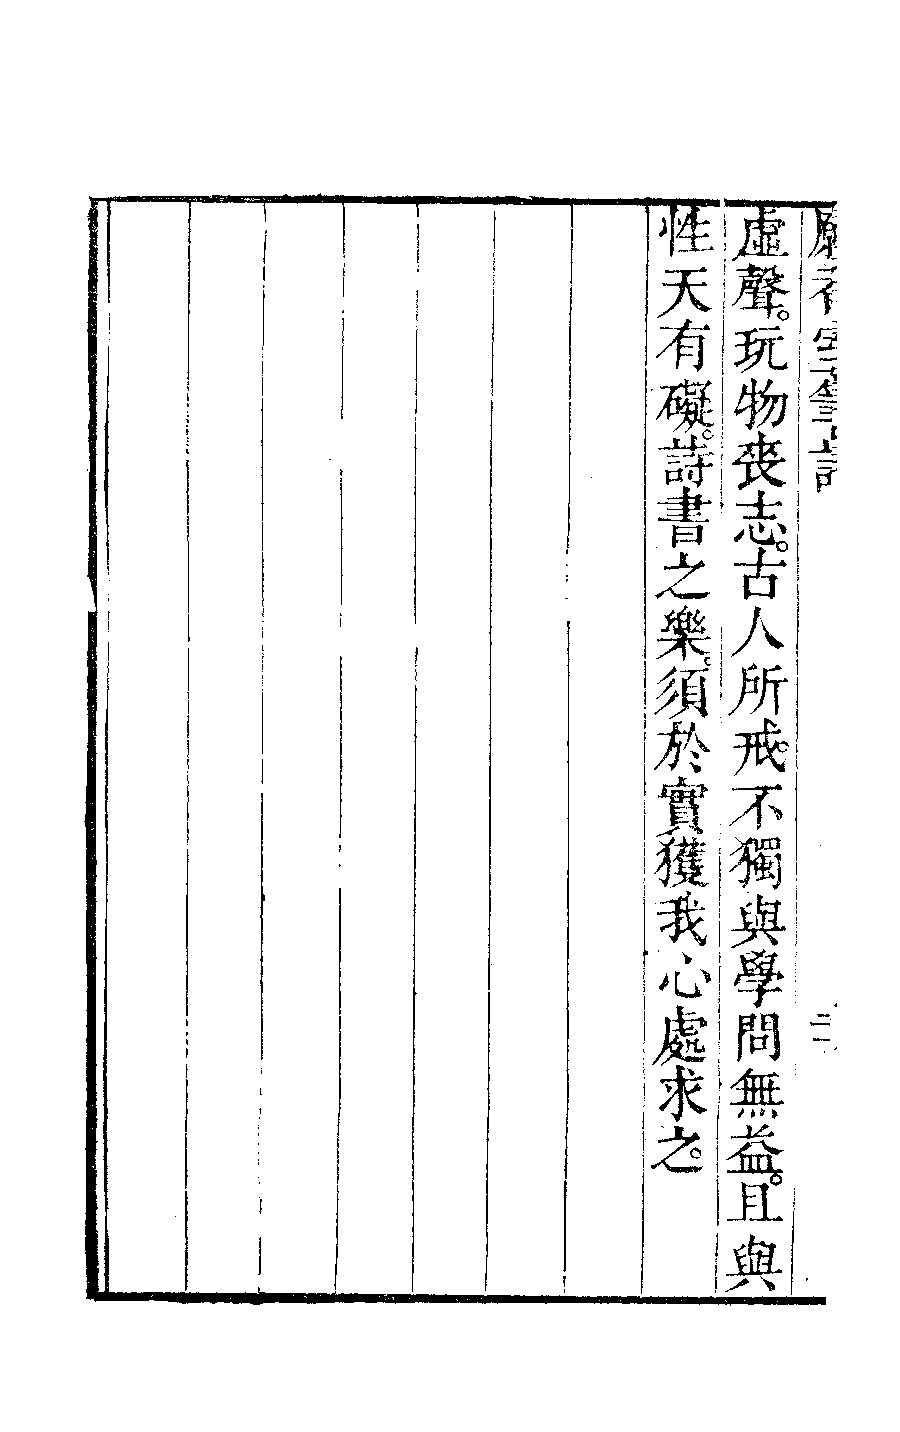 虛聲。玩物喪志。古人所戒。不獨與學問無益。且與
性天有礙。詩書之樂。須於實獲我心處求之。